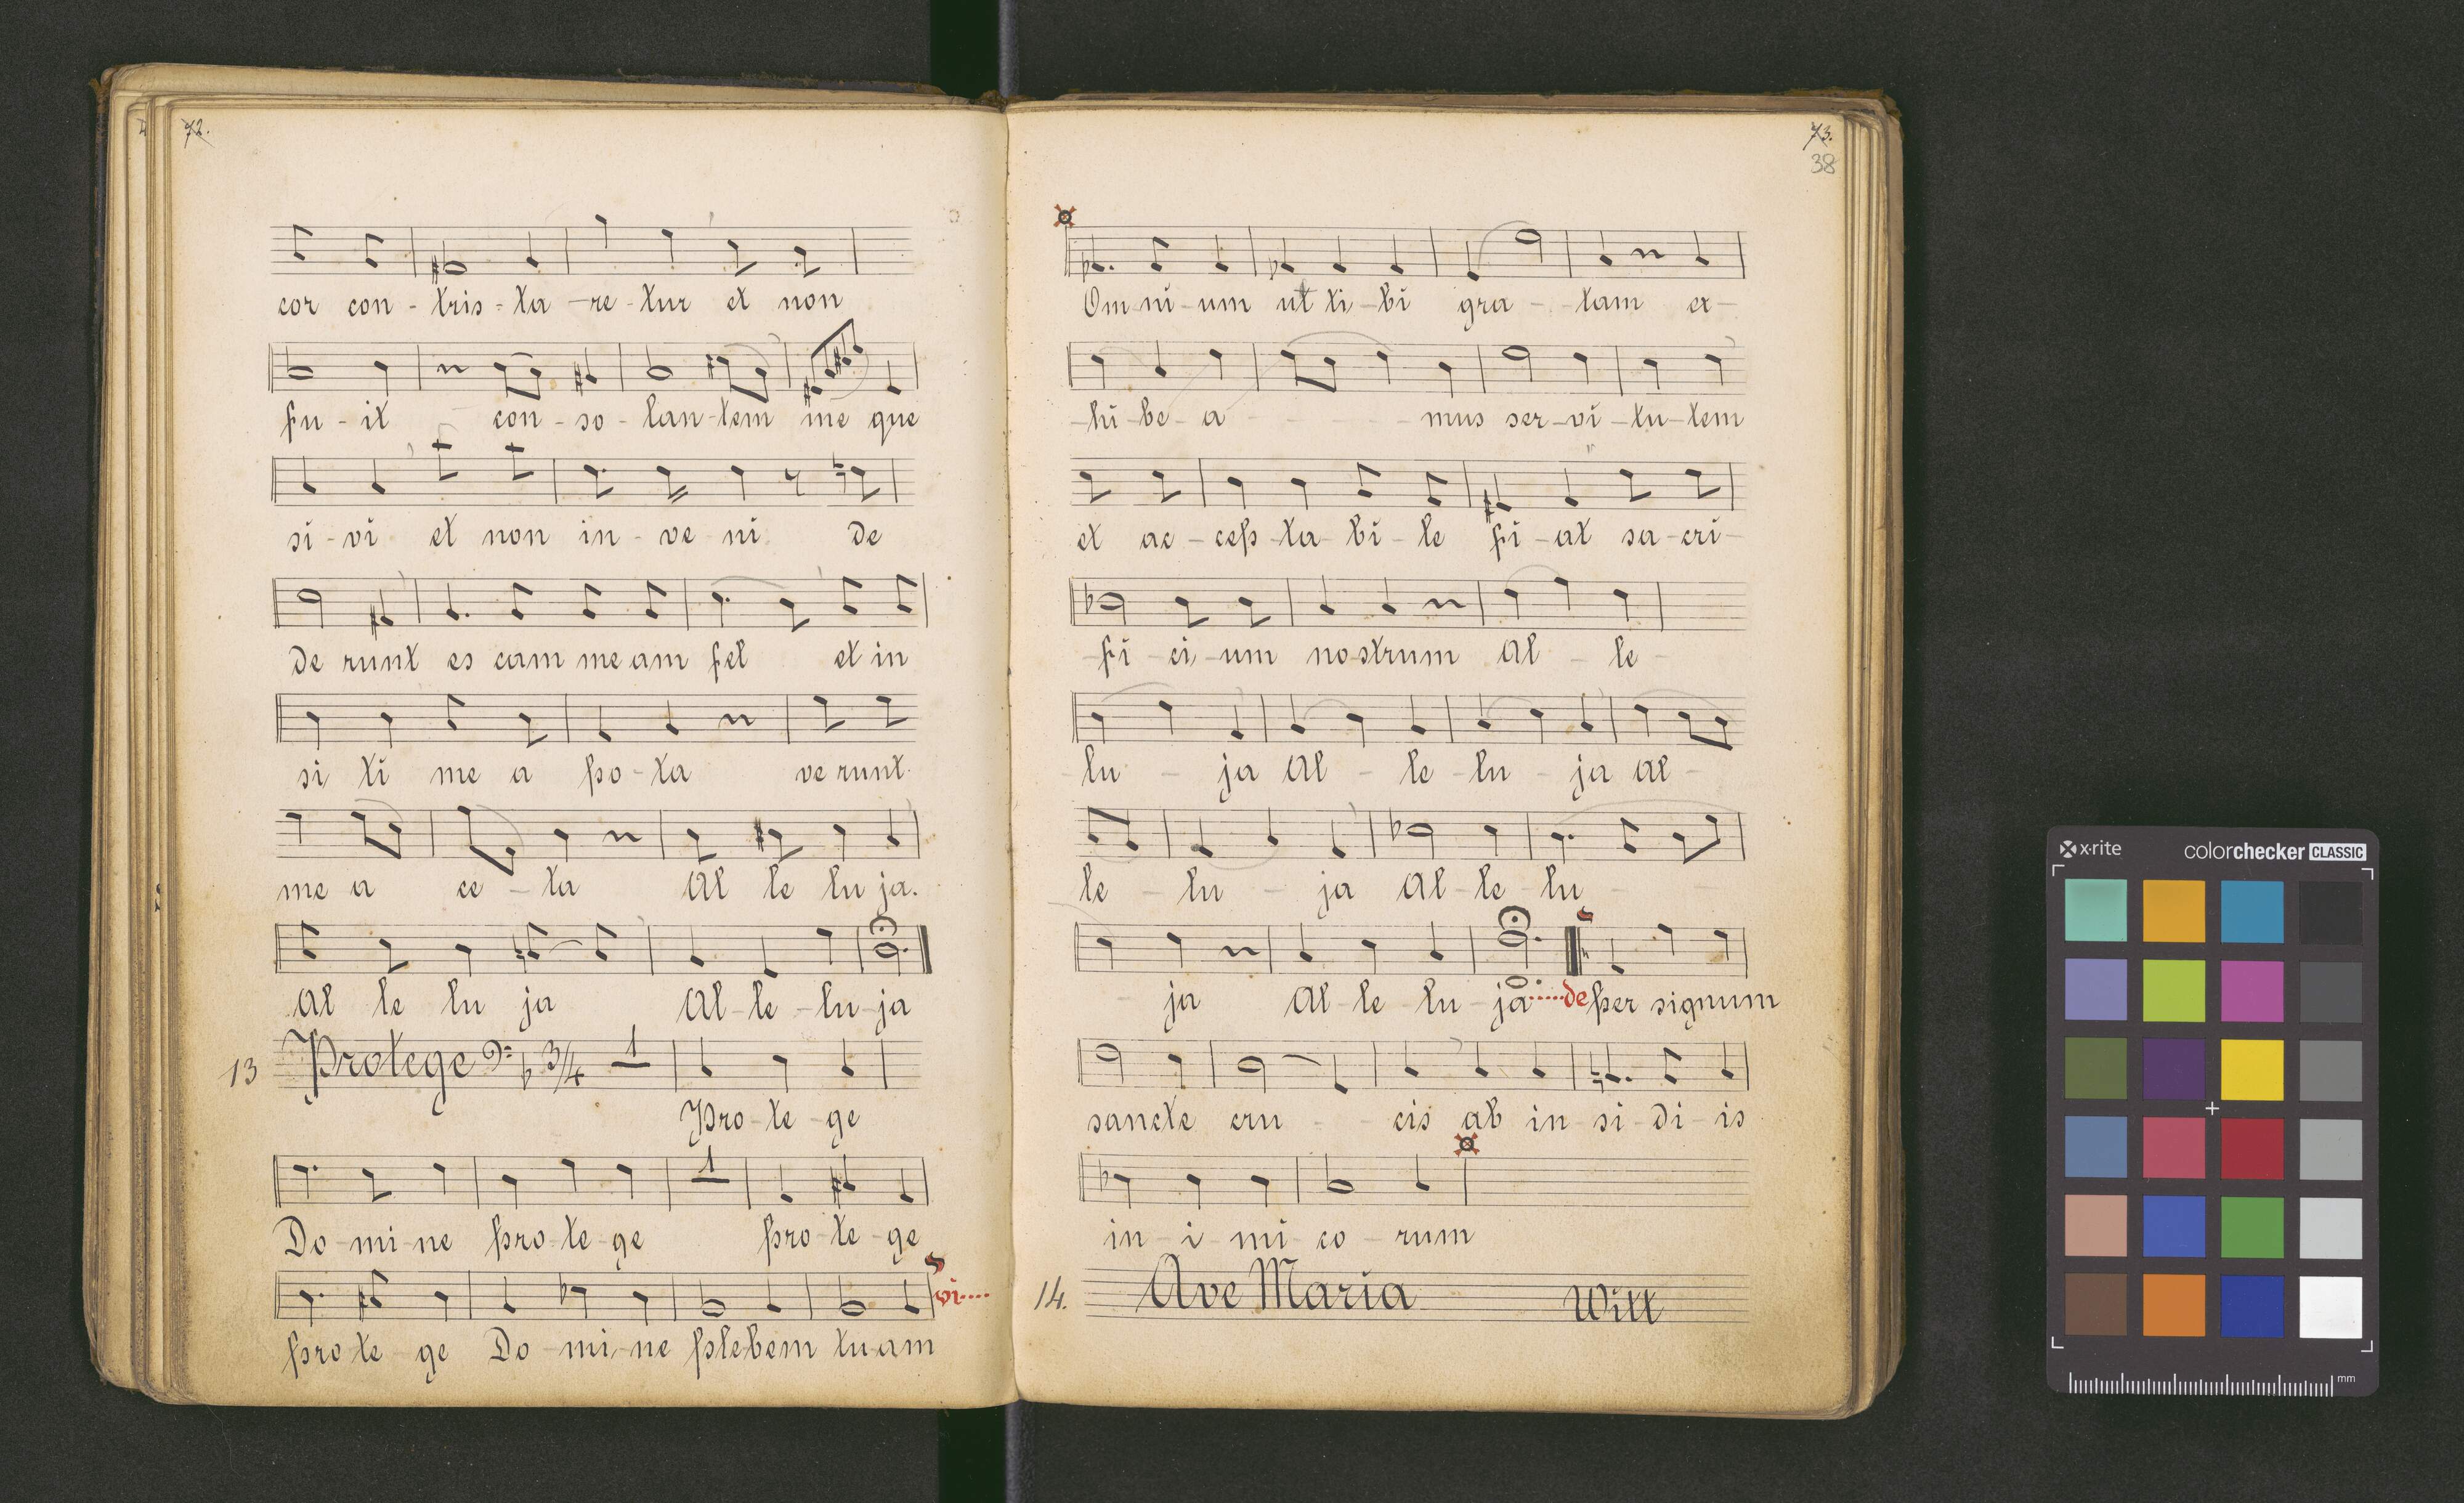 72.
cor con - tris - ta - re - tur et non
fu - it con - so - lan - tem me que
si - vi et non in - ve ni de
de runt es cam me am fel et in
si ti me a po - ta ve runt
me a ce - ta Al le lu ja.
Al le lu ja Al - le - lu - ja
13 Protege 3/4 1
Pro - te - ge
1
Do - mi - ne pro - te - ge pro - te - ge
vi....
pro te ge Do - mi - ne plebem tuam
73.
38
Om - ni - um ut ti - bi gra - tam ex -
- hi - be - a - - - - mus ser - vi - tu - tem
et ac - cep - ta - bi - le fi - at sa - cri -
- fi - ci - um no - strum Al - le -
- lu - ja Al - le - lu - ja al -
le - lu - ja Al - le - lu -
- ja Al - le - lu - ja.....de per signum
sancte cru - - cis ab in - si - di - is
in - i - mi - co - rum
14. Ave Maria Witt
x-rite colorchecker CLASSIC
mm